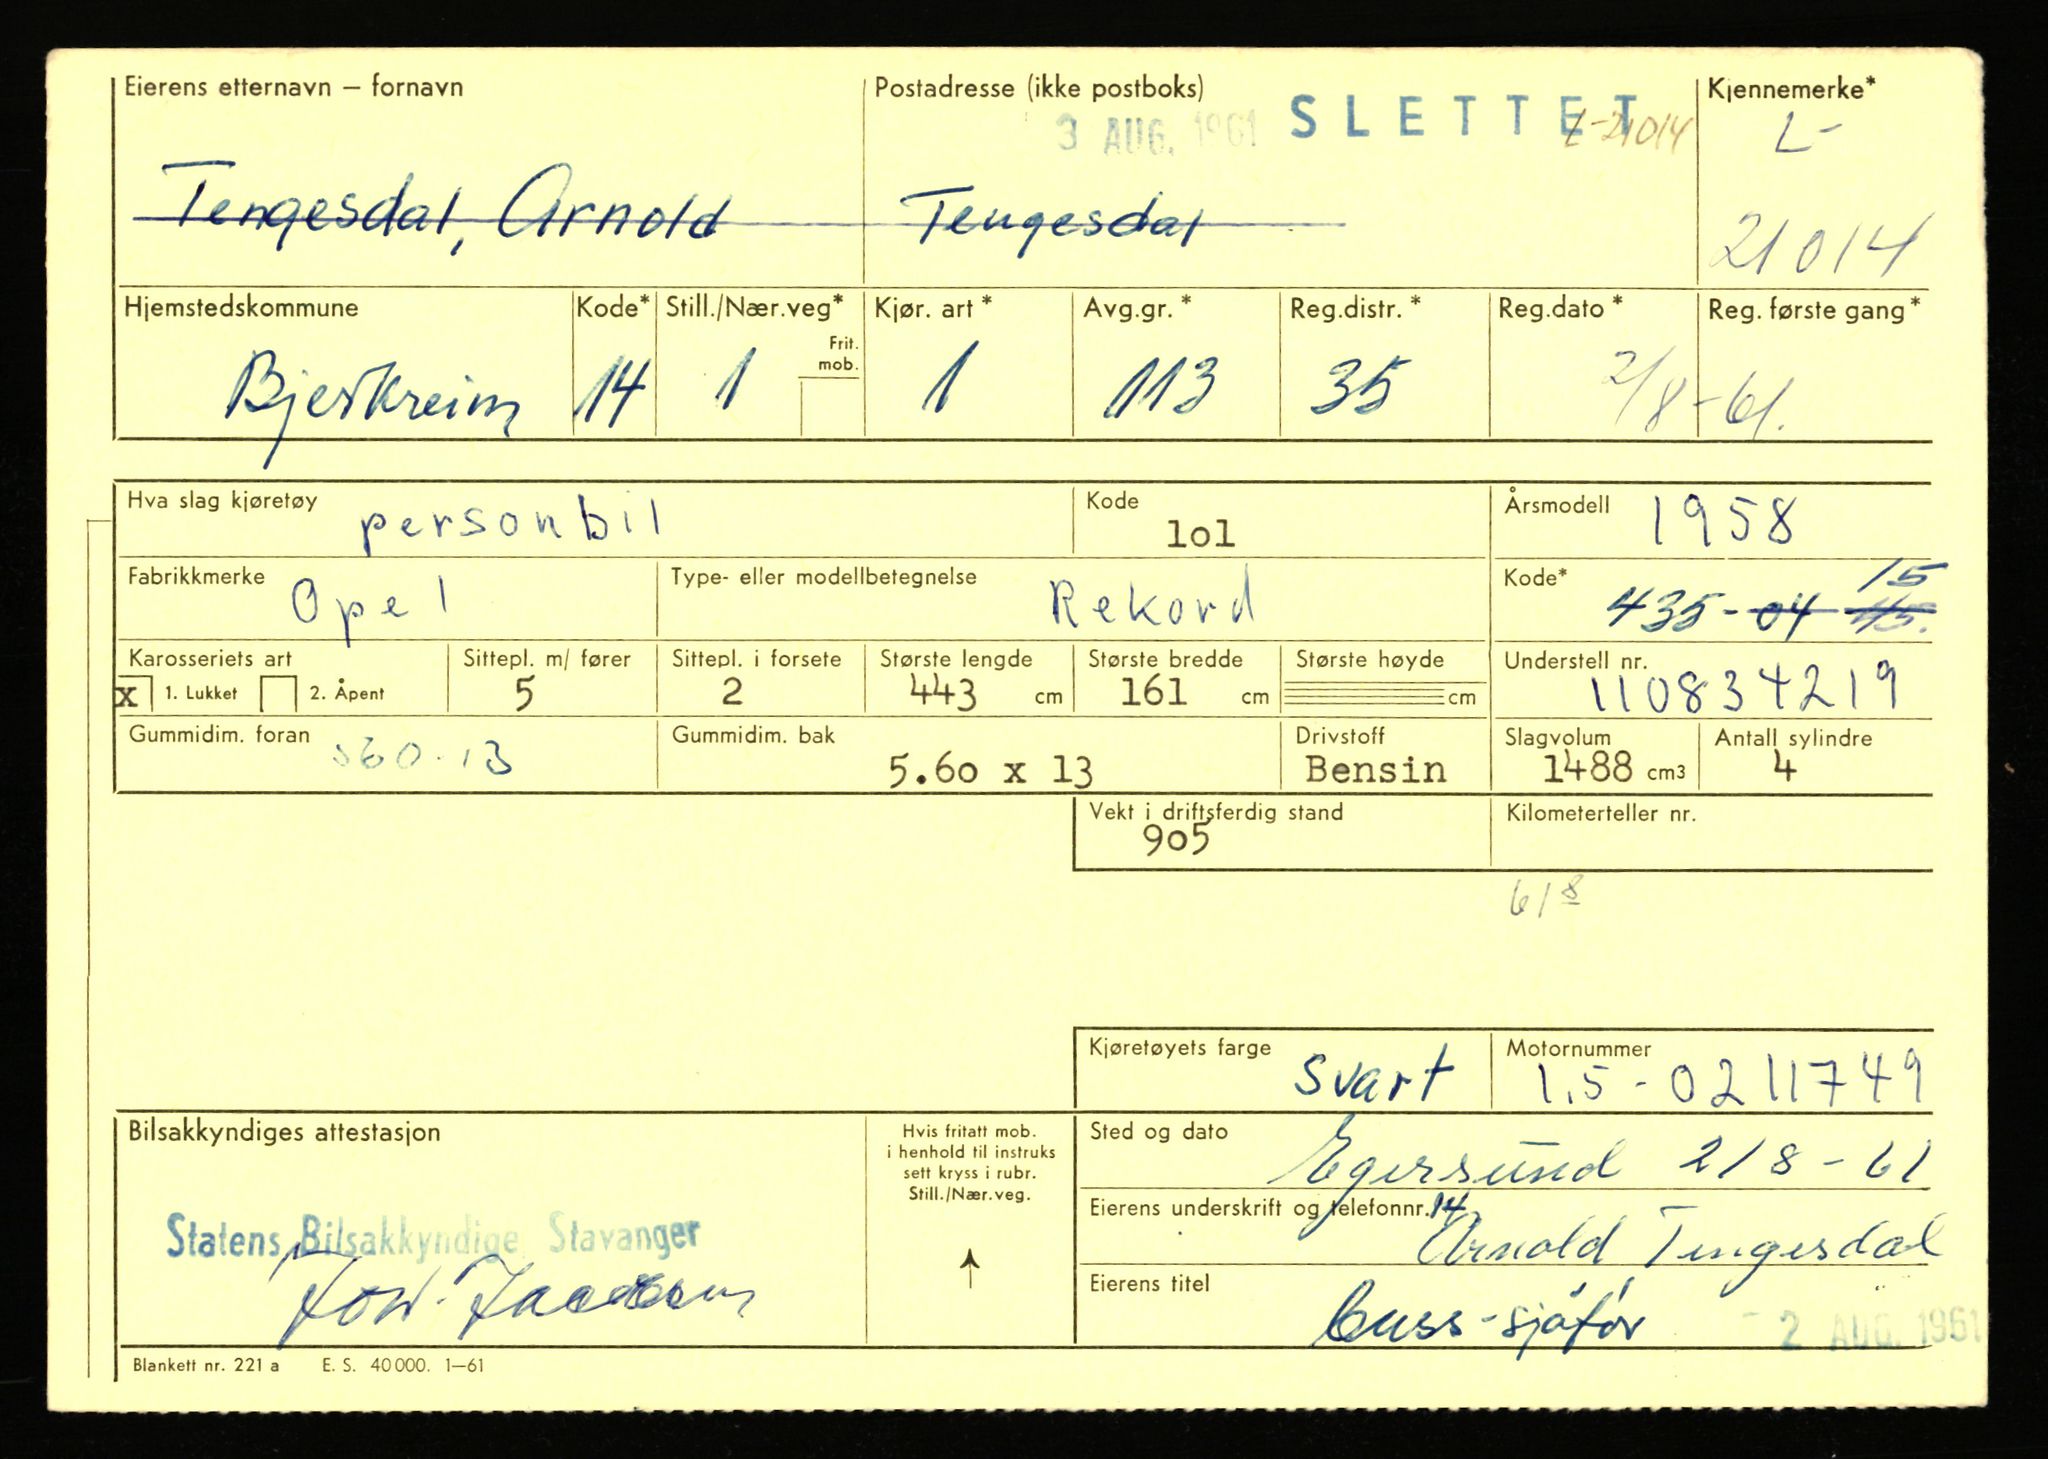 Eierens etternavn – fornavn Postadresse (ikke postboks) Kjennemerke*
3 AUG. 1961 SLETTET L-21014 L-
Tengesdal, Arnold Tengesdal
21014
Hjemstedskommune Kode* Still./Nær.veg* Kjør. art * Avg.gr. * Reg.distr. * Reg.dato * Reg. første gang *
Frit.
mob.
Bjerkreim 14 1 1 113 35 2/8-61.
Hva slag kjøretøy personbil Kode 1o1 Årsmodell 1958
Fabrikkmerke Opel Type- eller modellbetegnelse Rekord Kode* 15
435-04 45.
Karosseriets art Sittepl. m/ fører Sittepl. i forsete Største lengde Største bredde Største høyde Understell nr.
x 1. Lukket 2. Åpent 5 2 443 cm 161 cm cm 110834219
Gummidim. foran 560-13 Gummidim. bak Drivstoff Slagvolum Antall sylindre
5.6o x 13 Bensin 1488 cm3 4
Vekt i driftsferdig stand Kilometerteller nr.
9o5
61 8
Kjøretøyets farge svart Motornummer
1,5-0211749
Bilsakkyndiges attestasjon Hvis fritatt mob.
i henhold til instruks
sett kryss i rubr.
Still./Nær.veg.
Sted og dato Egersund 2/8-61
Eierens underskrift og telefonnr. 14
Statens Bilsakkyndige, Stavanger
Arnold Tengesdal
Eierens titel
Buss-sjåfør - 2 AUG. 1961
Blankett nr. 221 a E. S. 40 000. 1–61